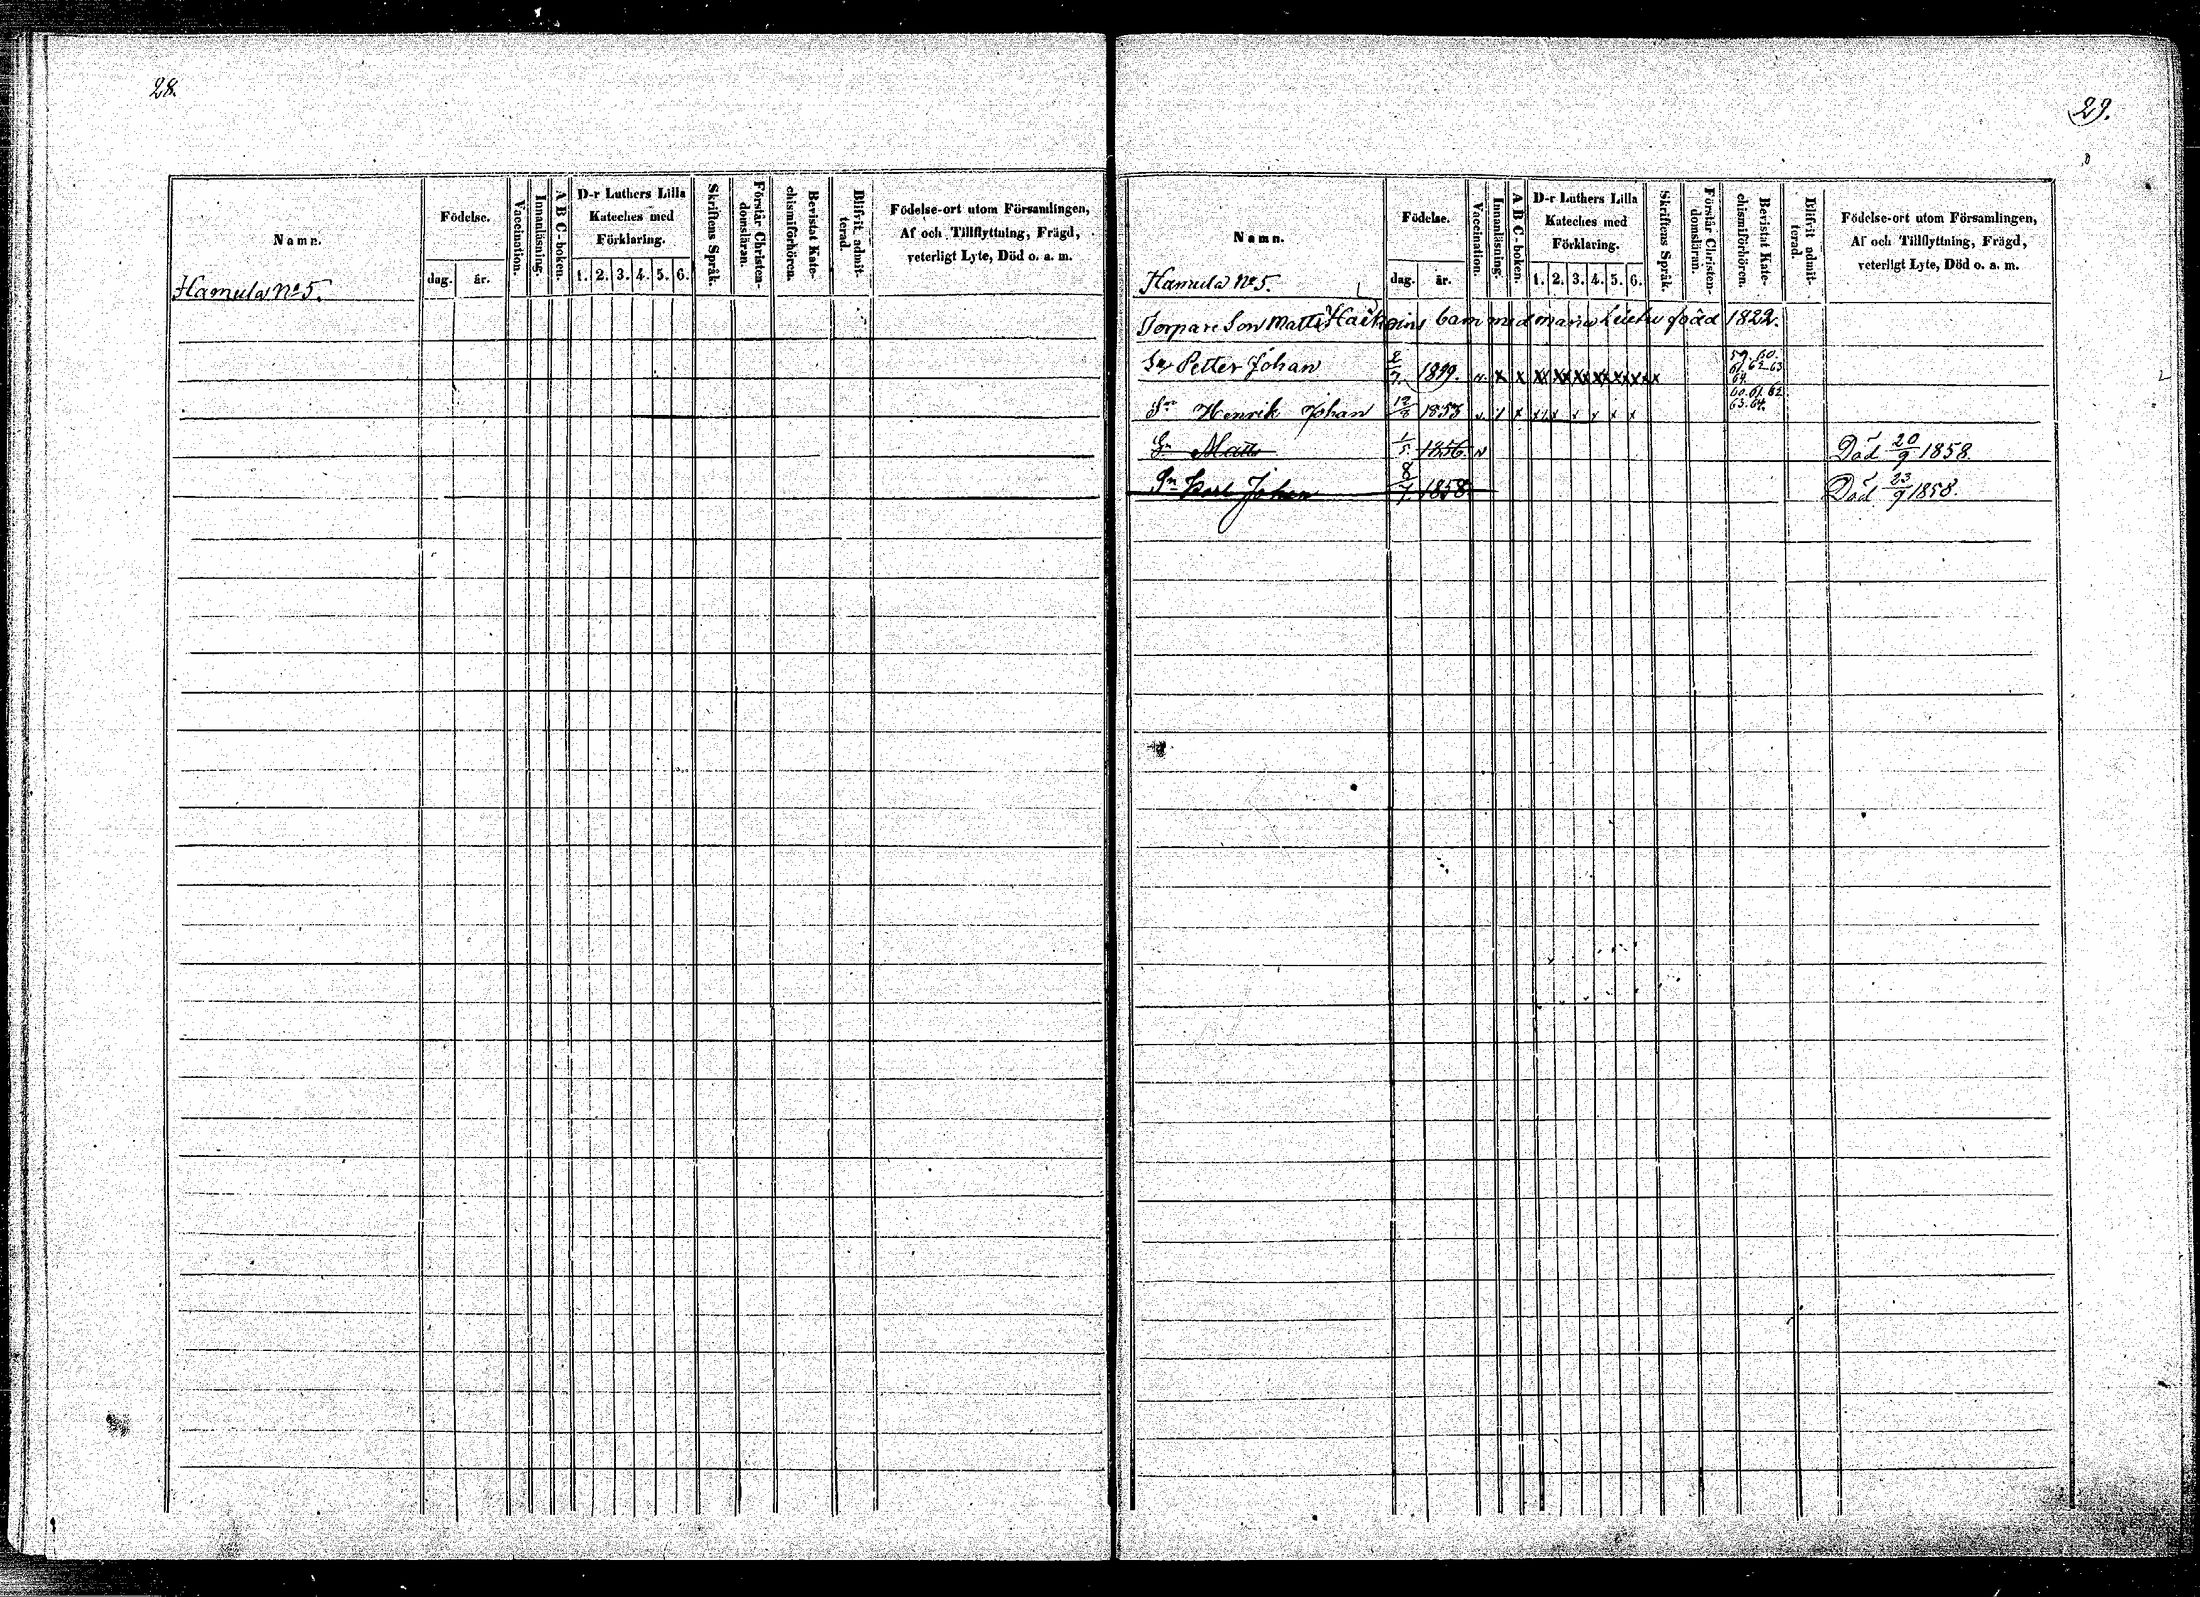 28.
Namn.
Födelse.
dag.
år.
Vaccination.
Innanläsning.
A B C-boken.
D-r Luthers Lilla
Kateches med
Förklaring.
1. 2. 3. 4. 5. 6.
Skriftens Språk.
Förstår Christen-
domsläran.
Bevistat Kate-
chismiförhören.
Blifvit admit-
terad.
Födelse-ort utom Församlingen,
Af och Tillflyttning, Frägd,
veterligt Lyte, Död o. a. m.
Hamula No 5.
29.
Namn.
Födelse.
dag.
år.
Vaccination.
Innanläsning.
A B C-boken.
D-r Luthers Lilla
Kateches med
Förklaring.
1. 2. 3. 4. 5. 6.
Skriftens Språk.
Förstår Christen-
domsläran.
Bevistat Kate-
chismiförhören.
Blifvit admit-
terad.
Födelse-ort utom Församlingen,
Af och Tillflyttning, Frägd,
veterligt Lyte, Död o. a. m.
Hamula No 5.
Torpare Son Matts barn med född 1822.
Sn Petter Johan 59. 60. 61. 62. 63 64.
Sn Henrik Johan 12/8 1853 60. 61. 62 63. 64.
Sn Matts 1/5 1856. Död 20/9 1858.
Sn Karl Johan 8/7 1858 Död 23/9 1858.